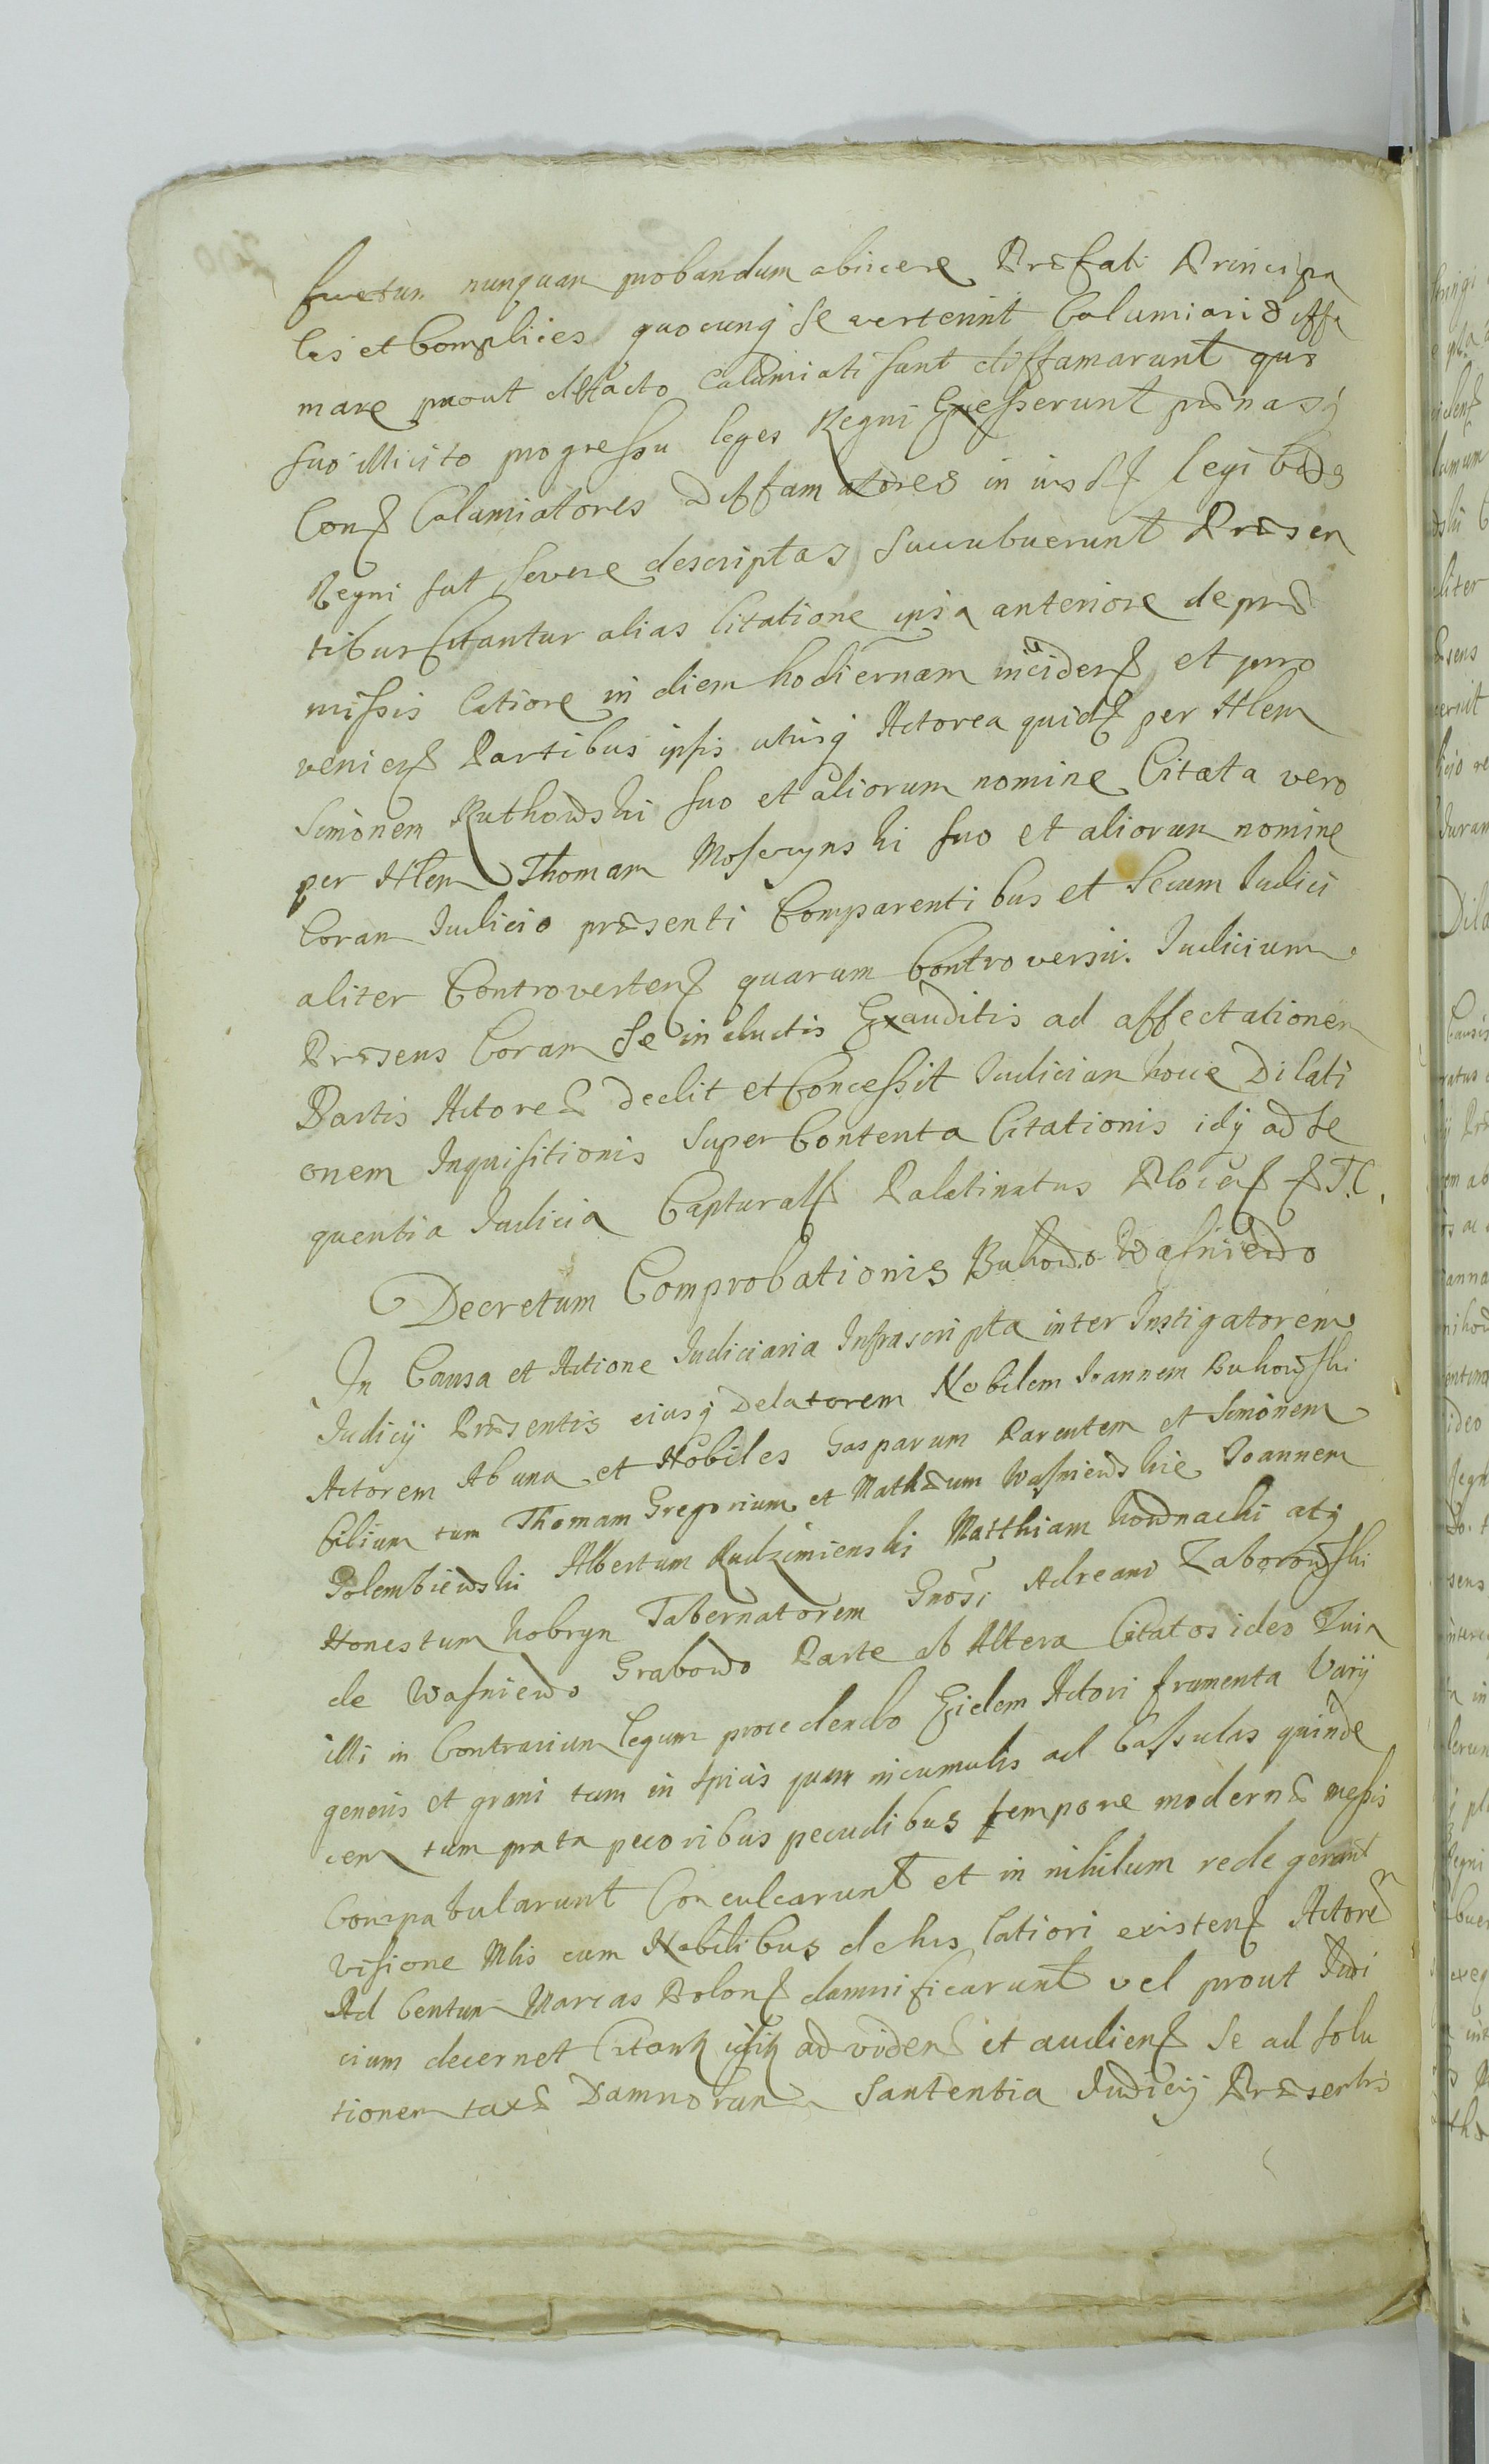 furtum nunquam probandum abiicere Præfati Principa
les et Complices quocunq se verterint Calumiari diffa
mare prout defacto Calumiati sunt diffamarunt quo
suo illicito progressu leges Regni Egresserunt pœnasq
Conß Calumiatores diffamatores in iisdß legibus
Regni sat severe descriptas succubuerunt Præsen
tibus Citantur alias Citatione ipsa anteriore de præ
missis latiore in diem hodiernam incidenß et pro
venienß Partibus ipsis utrisq Actorea quidß per Nlem
Simonem Rutkowski suo et aliorum nomine Citata vero
per Nlem Thomam Mosczynski suo et aliorum nomine
Coram Iudicio præsenti Comparentibus et Secum Iudici
aliter Controvertenß quarum Controversii. Iudicium
Præsens Coram Se inductis Exauditis ad affectationem
Partis Actoreæ Dedit et Concessit Iudicium hocce Dilati
onem Inquisitionis super Contenta Citationis idq ad se
quentia Iudicia Capturalß Palatinatus Plocenß P. T. C.
Decretum Comprobationis Bukowo Wasniewo
In Causa et Actione Iudiciaria Infrascripta inter Instigatorem
Iudicij Præsentis eiusq Delatorem Nobilem Ioannem Bukowski
Actorem Ab una et Nobiles Gasparum Parentem et Simonem
filium tum Thomam Gregorium et Mathæum Wasniewskie Ioannem
Golembiewski Albertum Rudzimienski Matthiam kownacki atq
Honestum kobryn Tabernatorem Gnosi Adreani Zaborowski
de Wasniewo Grabowo Parte ab Altera Citatos ideo Quia
illi in Contrarium legum procedendo Eidem Actori frumenta Varij
generis et grani tam in spicis quam in cumulis ad Cassulas quinde
cem tum prata pecoribus pecudibus tempore modernæ messis
Compabularunt Conculcarunt et in nihilum redegerunt
visione Mlis cum Nobilibus de his latiori existenß Actorem
Ad Centum Marcas Polonß damnificarunt vel prout Iudi
cium decernet ad videnß et audienß Se ad solu
tionem taxæ Damnorum Santentia Iudicij Præsentis